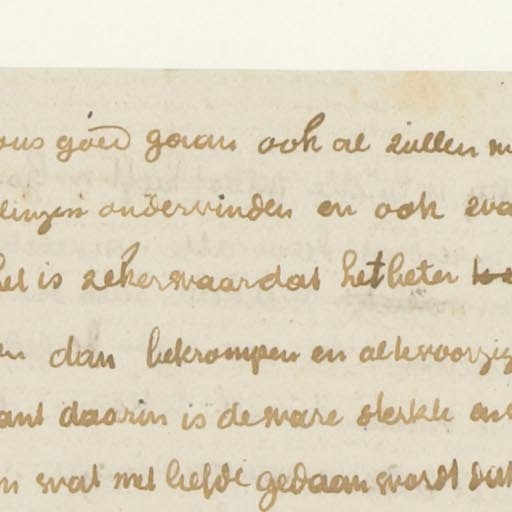 ons goed gaan ook al zullen
lingen ondervinden en ook
het is zeker waar dat het beter
en dan bekrompen en al te voorzig
ant daarin is de ware sterkte en
n wat met liefde gedaan wordt dat